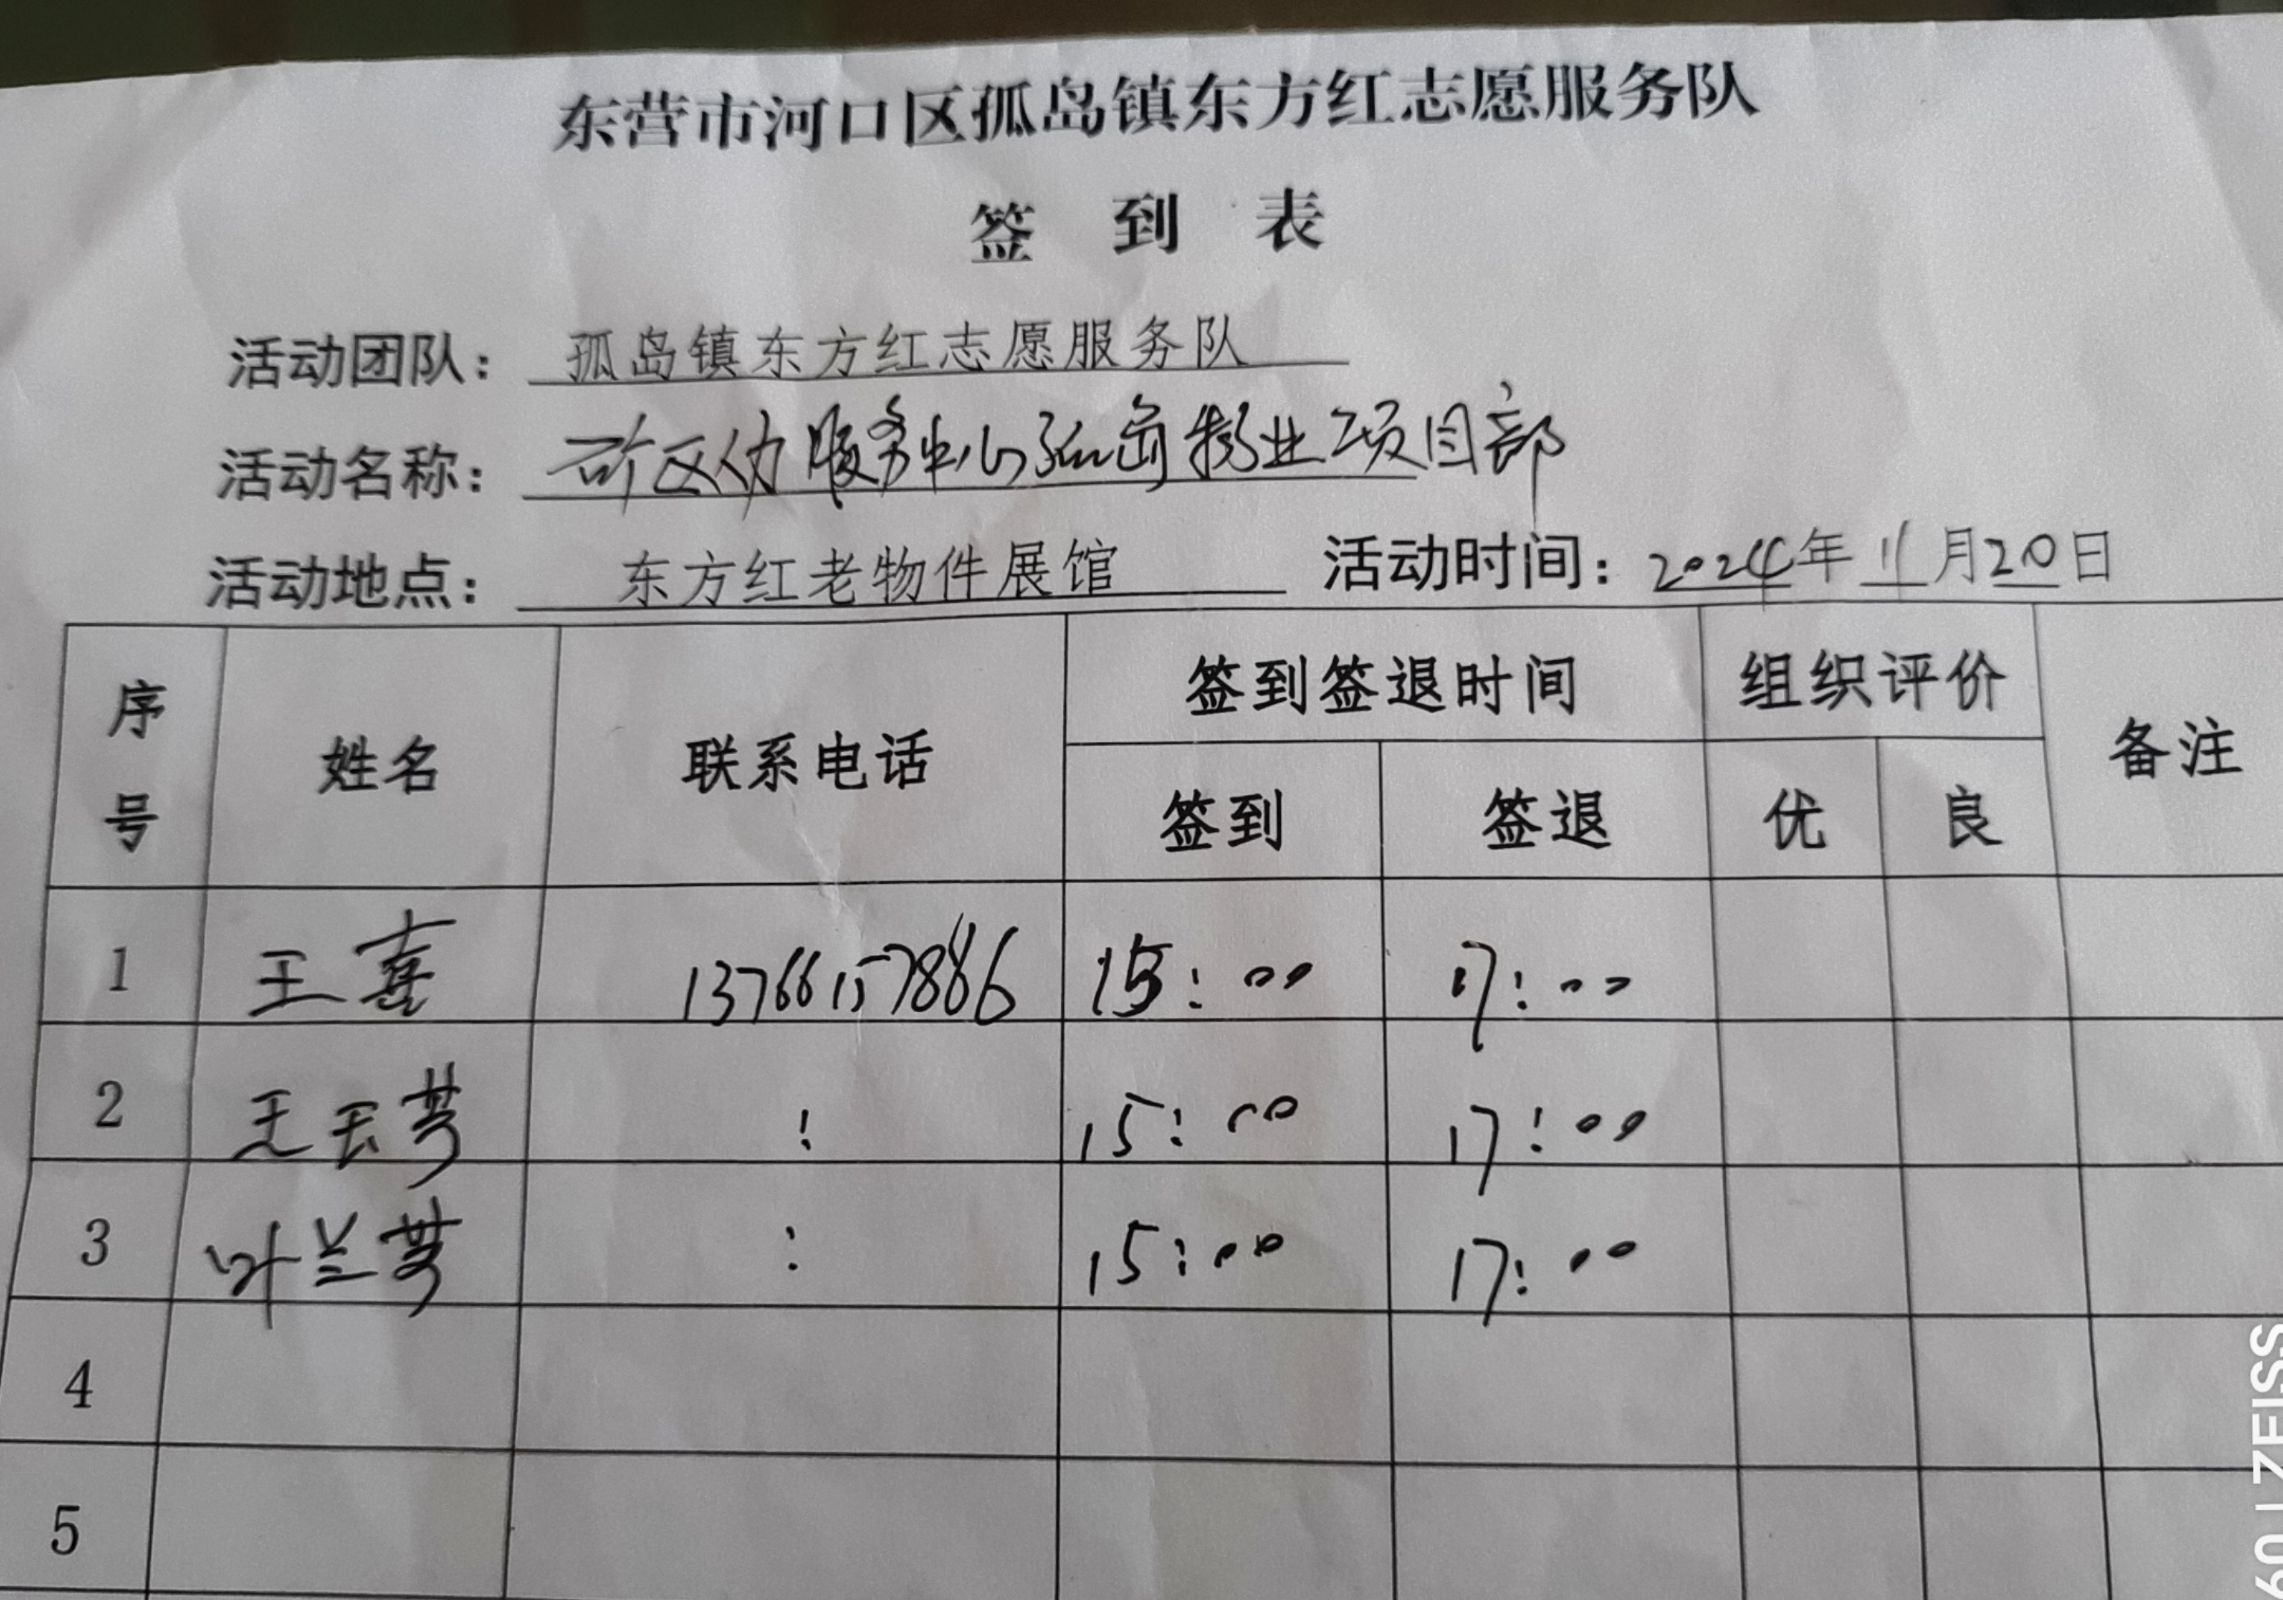 东营市河口区孤岛镇东方红志愿服务队
签 到 表
活动团队：孤岛镇东方红志愿服务队
活动名称：矿区 服务中心孤岛物业项目部
活动地点：东方红老物件展馆 活动时间：2024年11月20日
序号 姓名 联系电话 签到签退时间 组织评价 备注
签到 签退 优 良
1 王喜 13766157886 15:00 17:00
2 王云芳 : 15:00 17:00
3 叶兰芳 : 15:00 17:00
4
5
60 | ZEISS